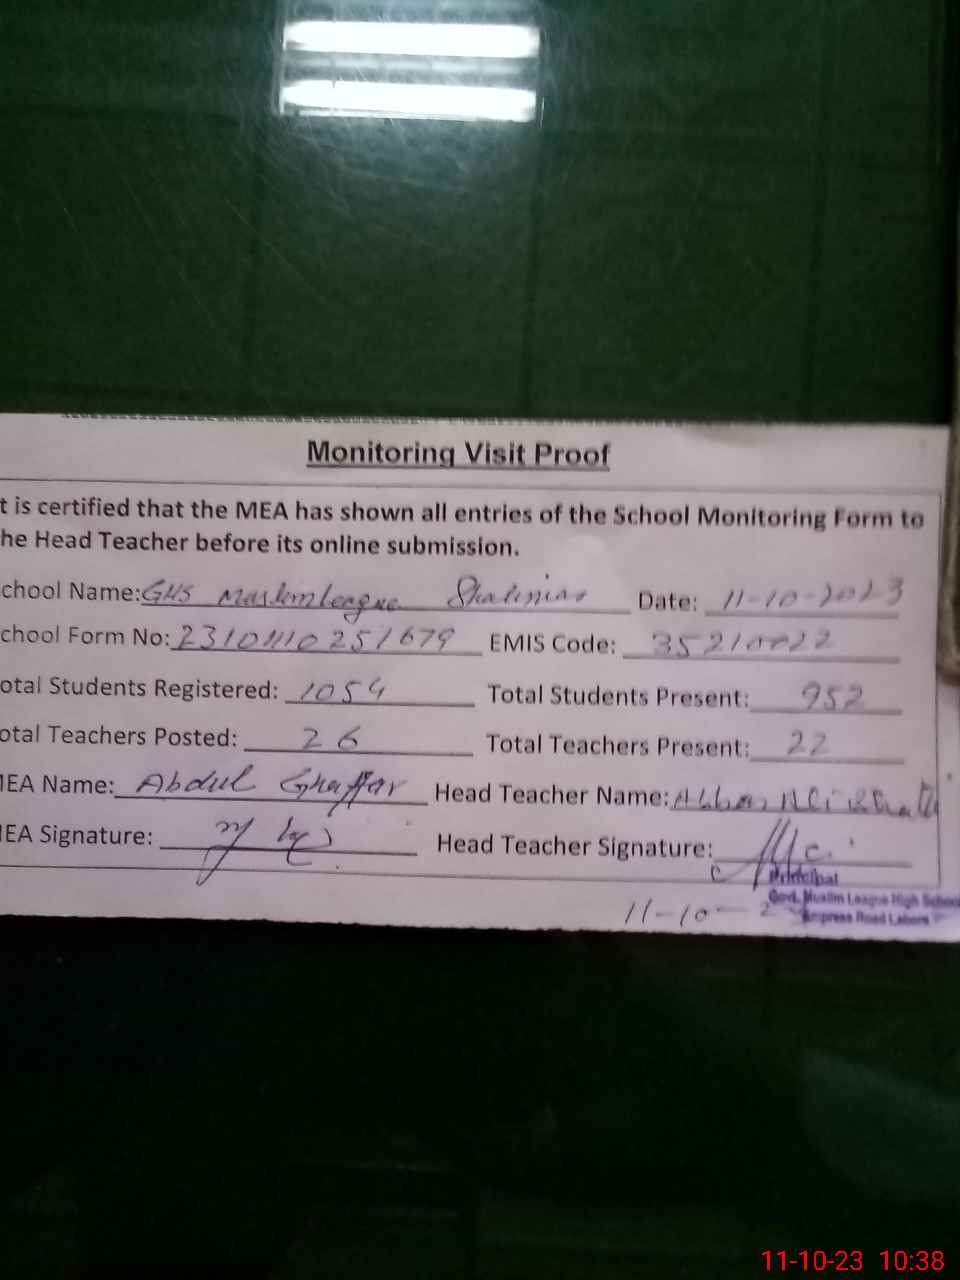 Monitoring Visit Proof
t is certified that the MEA has shown all entries of the School Monitoring Form to
he Head Teacher before its online submission.
chool Name: GHS Muslim League Date: 11-10-2023
chool Form No: EMIS Code: 35210022
otal Students Registered: 1054 Total Students Present: 952
otal Teachers Posted: 26 Total Teachers Present: 22
MEA Name: Abdul Ghaffar Head Teacher Name:
MEA Signature: Head Teacher Signature:
Principal
Govt. Muslim League High School
11-10- Empress Road Lahore
11-10-23 10:38